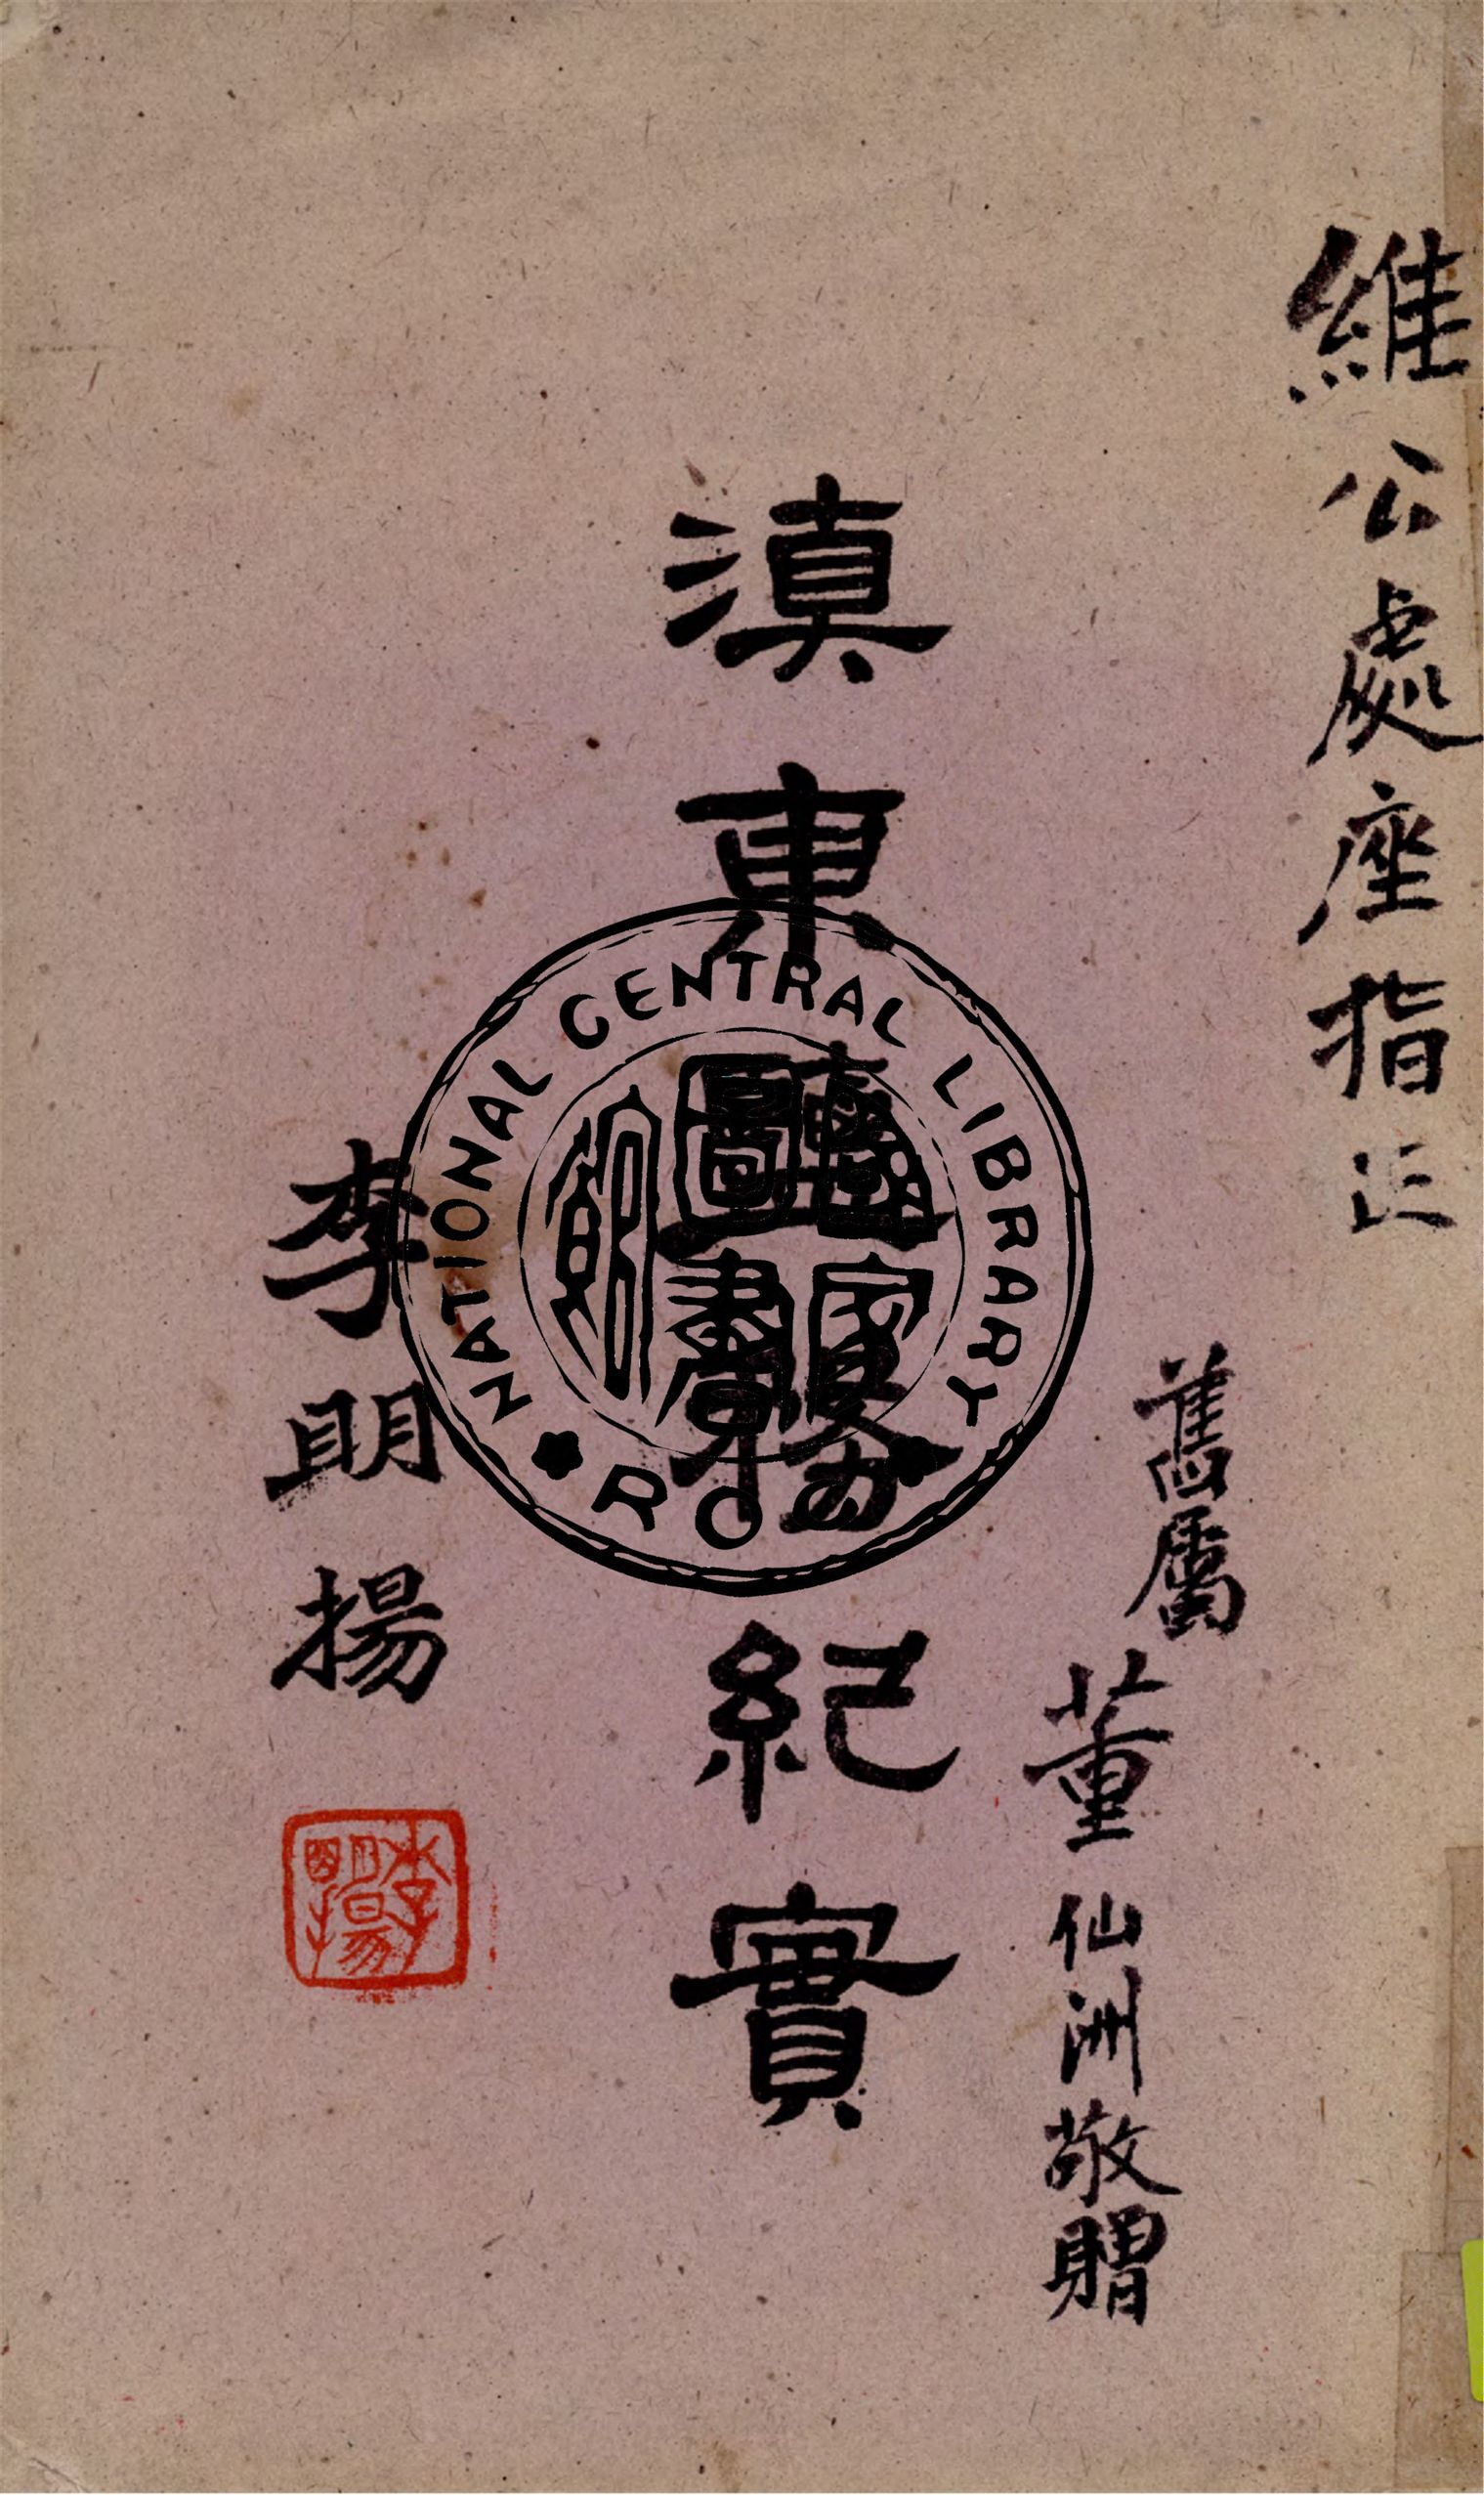 維公處座指正
舊屬董仙洲敬贈
滇東務紀實
李明揚
李明揚
NATIONAL CENTRAL LIBRARY
國家圖書館
R O C